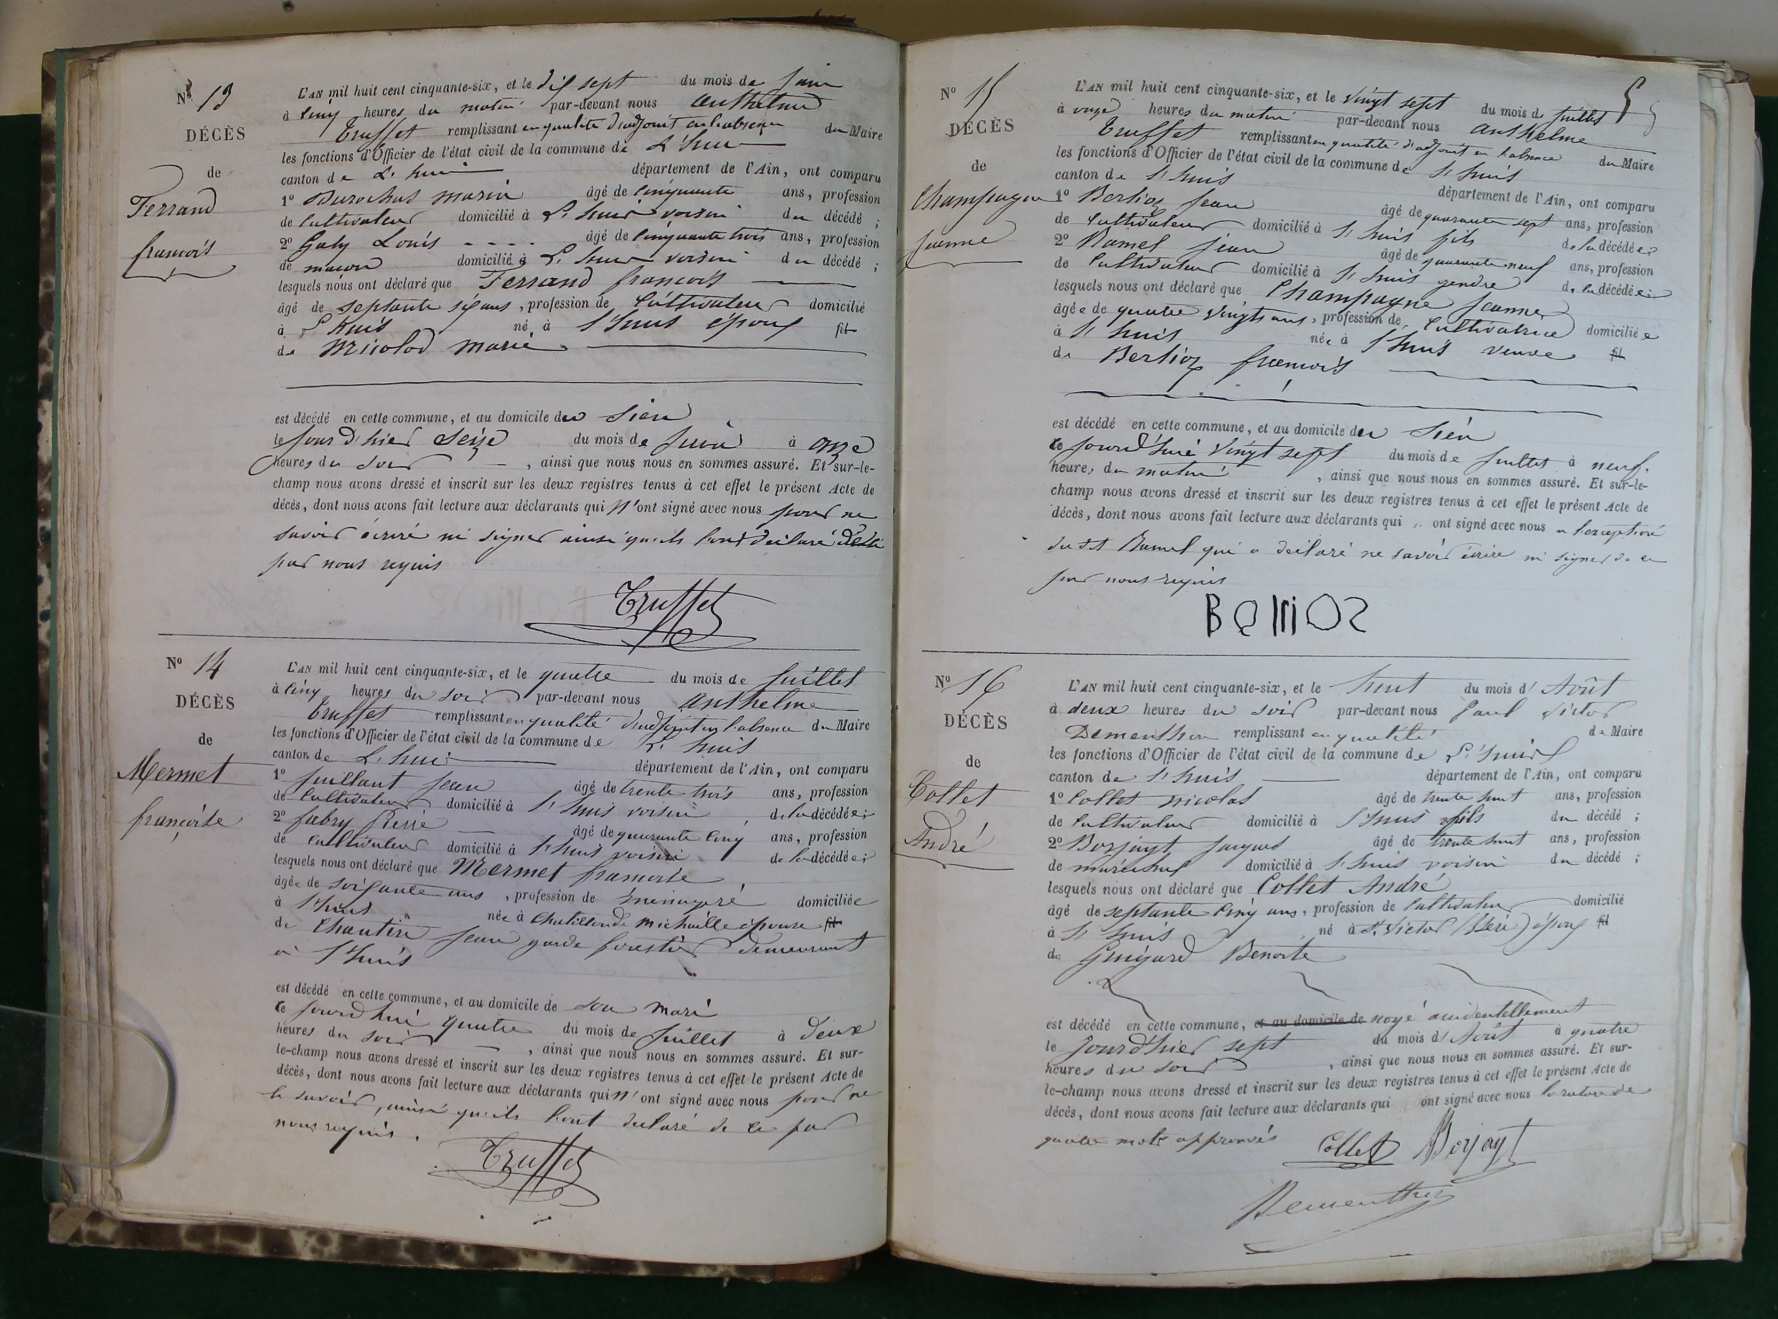 N° 13
DÉCÈS
de
Ferrand
françois
L'AN mil huit cent cinquante-six, et le dix sept du mois de juin
à cinq heures du matin par-devant nous anthelme
Truffet remplissant en qualité d'adjoint en l'absence du Maire
les fonctions d'Officier de l'état civil de la commune de L'huis
canton de L'huis département de l'Ain, ont comparu
1° Durochat marin âgé de cinquante ans, profession
de cultivateur domicilié à L'huis voisin du décédé ;
2° Galy Louis âgé de cinquante trois ans, profession
de maçon domicilié à L'huis voisin du décédé ;
lesquels nous ont déclaré que Ferrand françois
âgé de septante six ans, profession de cultivateur domicilié
à L'huis né à l'huis époux fil
de marie
est décédé en cette commune, et au domicile du sien
le jour d'hier seize du mois de juin à onze
heures du soir, ainsi que nous nous en sommes assuré. Et sur-le-
champ nous avons dressé et inscrit sur les deux registres tenus à cet effet le présent Acte de
décès, dont nous avons fait lecture aux déclarants qui n'ont signé avec nous pour ne
savoir écrire ni signer ainsi qu'ils l'ont déclaré de ce
par nous requis
Truffet
N° 14
DÉCÈS
de
Mermet
françoise
L'AN mil huit cent cinquante-six, et le quatre du mois de juillet
à cinq heures du soir par-devant nous anthelme
Truffet remplissant en qualité d'adjoint en l'absence du Maire
les fonctions d'Officier de l'état civil de la commune de L'huis
canton de L'huis département de l'Ain, ont comparu
1° Juillant jean âgé de trente trois ans, profession
de cultivateur domicilié à l'huis voisin de la décédée ;
2° fabry pierre âgé de quarante cinq ans, profession
de cultivateur domicilié à l'huis voisin de la décédée ;
lesquels nous ont déclaré que Mermet françoise
âgée de soixante ans, profession de ménagère domiciliée
à l'huis née à Chatillon de michaille épouse fil
de Chautin jean garde forestier demeurant
à l'huis
est décédé en cette commune, et au domicile de son mari
ce jourd'hui quatre du mois de juillet à deux
heures du soir, ainsi que nous nous en sommes assuré. Et sur-
le-champ nous avons dressé et inscrit sur les deux registres tenus à cet effet le présent Acte de
décès, dont nous avons fait lecture aux déclarants qui n'ont signé avec nous pour ne
le savoir, ainsi qu'ils l'ont déclaré de ce par
nous requis.
Truffet
5
N° 15
DÉCÈS
de
Champagne
jeanne
L'AN mil huit cent cinquante-six, et le vingt sept du mois de juillet
à onze heures du matin par-devant nous anthelme
Truffet remplissant en qualité d'adjoint en l'absence du Maire
les fonctions d'Officier de l'état civil de la commune de l'huis
canton de l'huis département de l'Ain, ont comparu
1° Berlioz jean âgé de quarante sept ans, profession
de cultivateur domicilié à l'huis fils de la décédée ;
2° Ramel jean âgé de quarante neuf ans, profession
de cultivateur domicilié à l'huis gendre de la décédée ;
lesquels nous ont déclaré que Champagne jeanne
âgée de quatre vingts ans, profession de cultivatrice domiciliée
à l'huis née à l'huis veuve fil
de Berlioz françois
est décédé en cette commune, et au domicile du sien
ce jourd'hui vingt sept du mois de juillet à neuf
heures du matin, ainsi que nous nous en sommes assuré. Et sur-le-
champ nous avons dressé et inscrit sur les deux registres tenus à cet effet le présent Acte de
décès, dont nous avons fait lecture aux déclarants qui ont signé avec nous a l'exception
du dit Ramel qui a déclaré ne savoir écrire ni signer de ce
par nous requis
N° 16
DÉCÈS
de
Collet
André
L'AN mil huit cent cinquante-six, et le huit du mois d'Août
à deux heures du soir par-devant nous paul victor
Dementhon remplissant en qualité de Maire
les fonctions d'Officier de l'état civil de la commune de L'huis
canton de l'huis département de l'Ain, ont comparu
1° Collet nicolas âgé de trente huit ans, profession
de cultivateur domicilié à l'huis fils du décédé ;
2° Borjayt jacques âgé de trente huit ans, profession
de maréchal domicilié à l'huis voisin du décédé ;
lesquels nous ont déclaré que Collet André
âgé de septante cinq ans, profession de cultivateur domicilié
à l'huis né à St Victor (Isère) époux fil
de Guigard Benoite
est décédé en cette commune, et au domicile de noyé accidentellement
le jour d'hier sept du mois d'Août à quatre
heures du soir, ainsi que nous nous en sommes assuré. Et sur-
le-champ nous avons dressé et inscrit sur les deux registres tenus à cet effet le présent Acte de
décès, dont nous avons fait lecture aux déclarants qui ont signé avec nous la rature de
quatre mots approuvés
Collet Borjayt
Dementhon